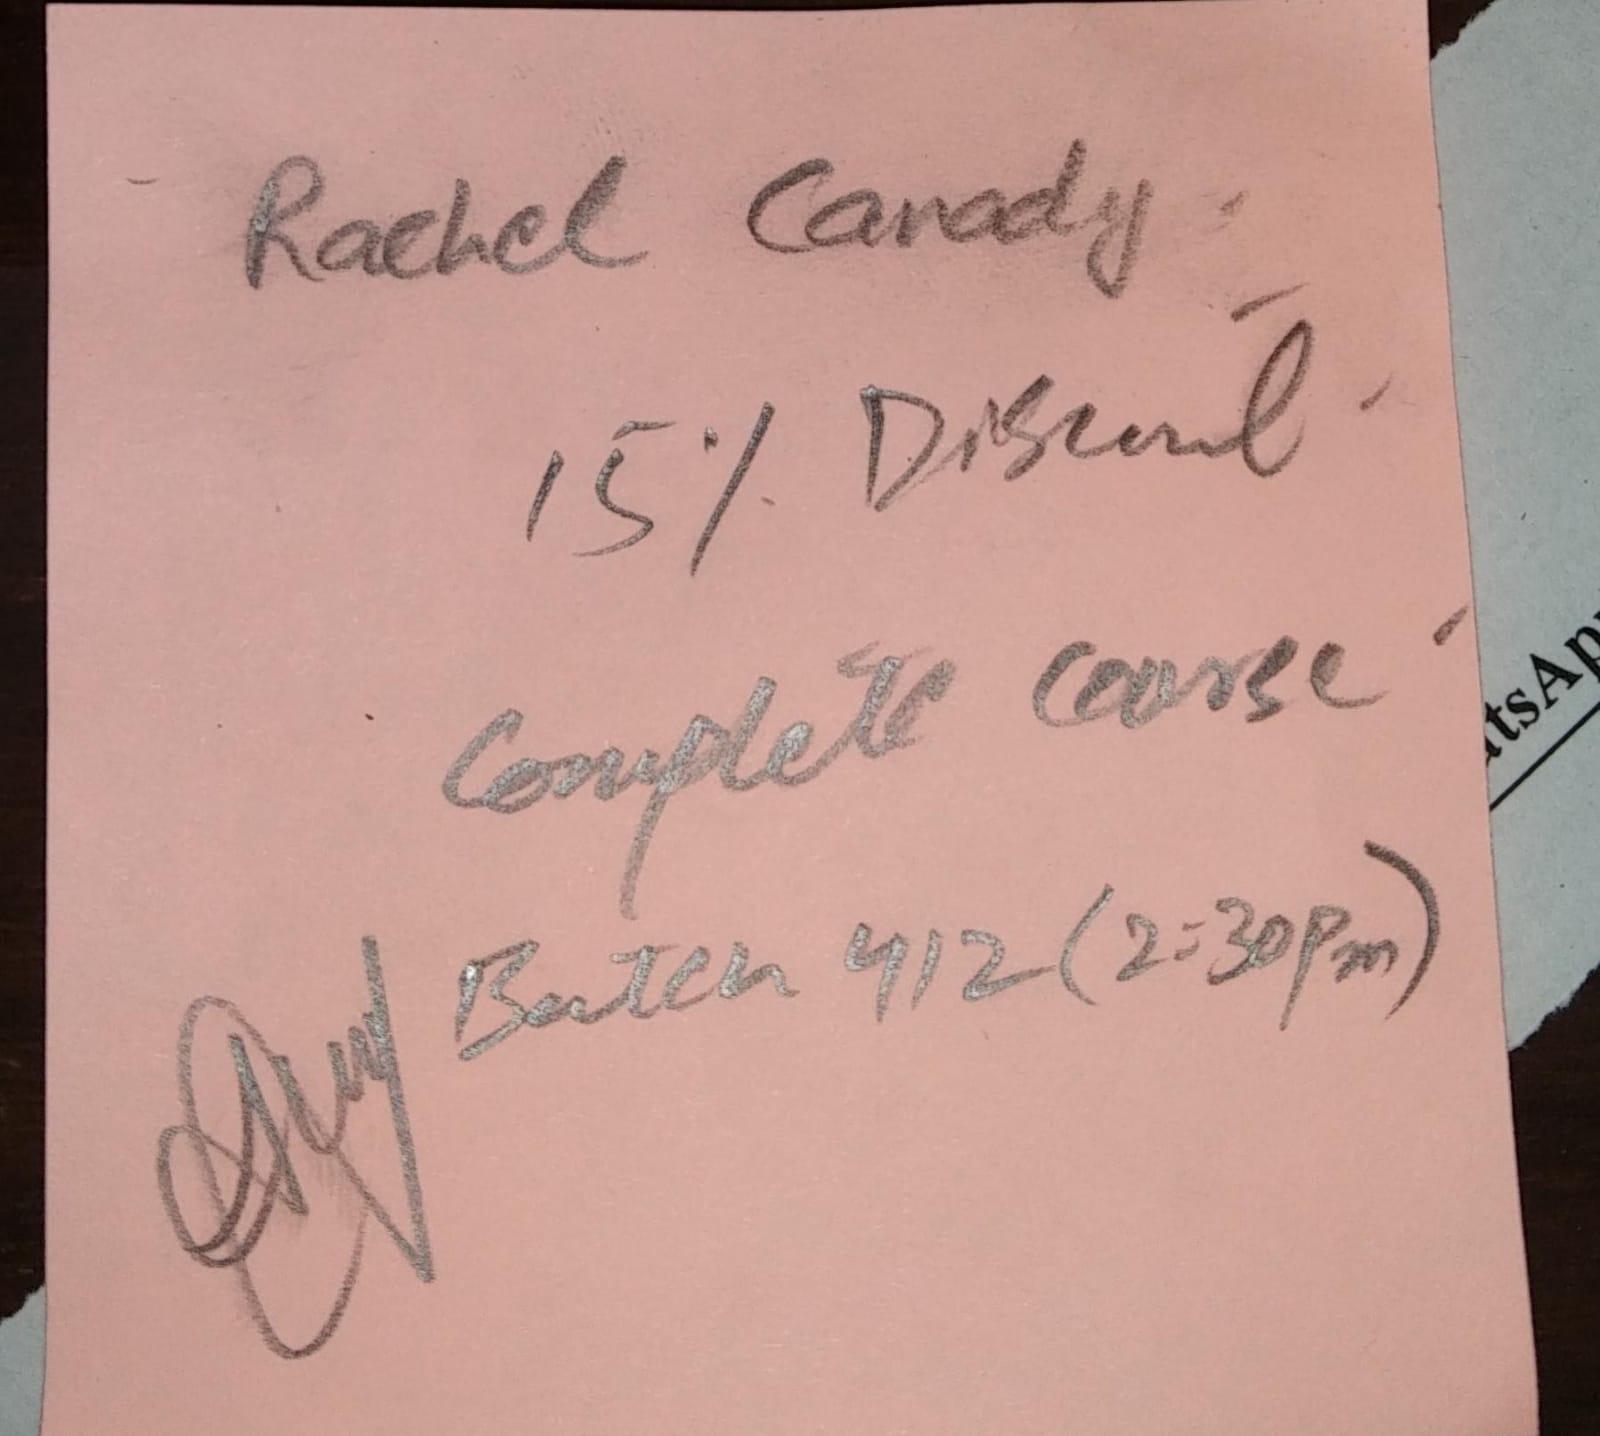 Rachel Canady.
15% Discount.
Complete Course
Batch 412 (2:30pm)
tsApp